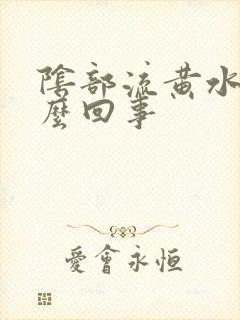 陰部流黄水
麼回事
愛會永恒